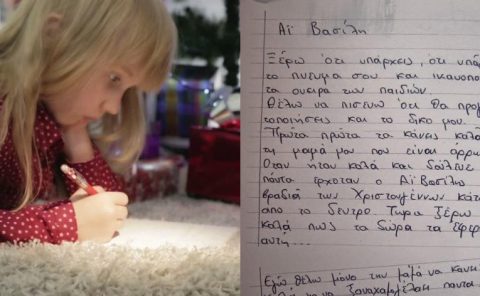 Αϊ Βασίλη
Ξέρω ότι υπάρχεις, ότι υπάρ
το πνευμα σου και ικανοπο
τα ονειρα των παιδιών.
Θέλω να πιστευω ότι θα πραγ
τοποιήσεις και το δικο μου.
Πρώτα πρώτα να κάνεις καλά
τη μαμά μου που είναι άρρω
Οταν ήταν καλά και δούλευε
πάντα ερχοταν ο Αϊ Βασίλης
βραδιά των Χριστουγέννων κάτω
απο το δεντρο. Τωρα ξέρω
καλά πως τα δώρα τα έφερ
αυτη...
Εγώ θέλω μόνο την μαμά να κανει
να ξαναχαμογελάει παντα